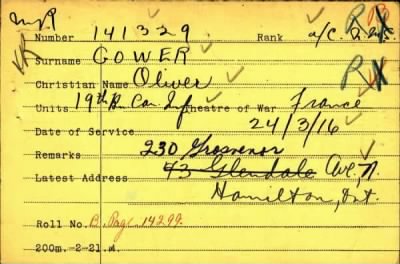 Number 141329 Rank
Surname GOWER
Christian Name Oliver
Units 19th Bn Can Inf Theatre of War France
Date of Service 24/3/16
Remarks 230 Grosvenor
Latest Address 43 Glendale Ave, N.
Hamilton, Ont.
Roll No. B. Page 14299.
200m.-2-21.